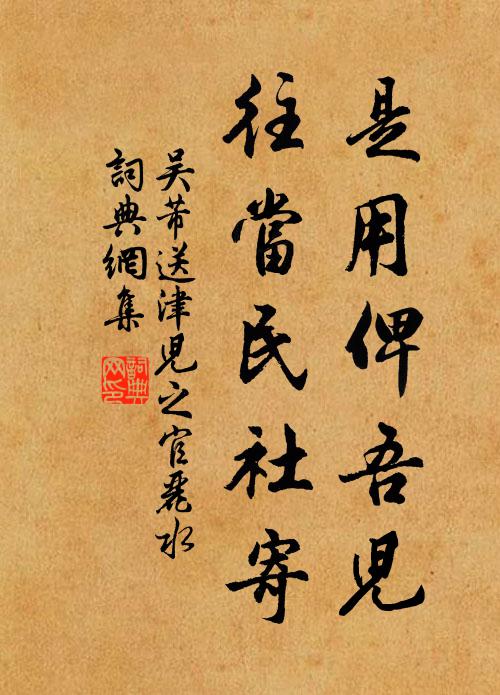 是用俾吾兒
往當民社寄
吴芾送津兒之官麗水
詞典網集
詞典
网印